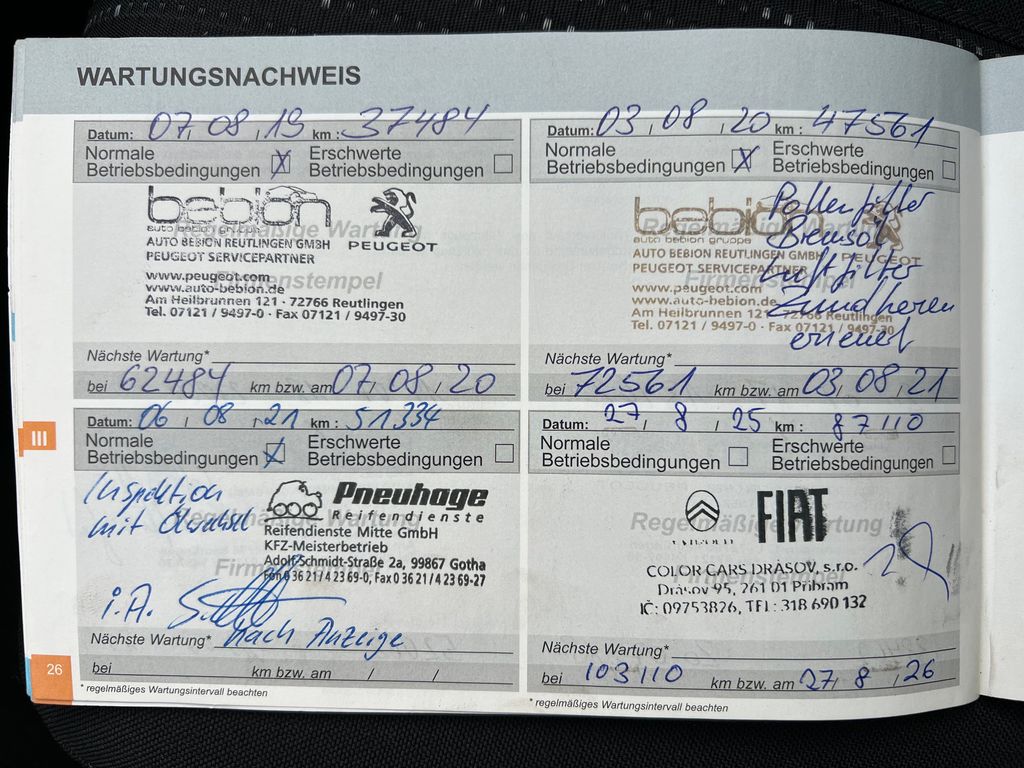 WARTUNGSNACHWEIS
Datum: 07/08/19 km: 37484
Normale Betriebsbedingungen X Erschwerte Betriebsbedingungen
bebion
auto bebion gruppe
Regelmäßige Wartung
PEUGEOT
AUTO BEBION REUTLINGEN GMBH
PEUGEOT SERVICEPARTNER
Firmenstempel
www.peugeot.com
www.auto-bebion.de
Am Heilbrunnen 121 · 72766 Reutlingen
Tel. 07121 / 9497-0 · Fax 07121 / 9497-30
Nächste Wartung*
bei 62484 km bzw. am 07/08/20
Datum: 03/08/20 km: 47561
Normale Betriebsbedingungen X Erschwerte Betriebsbedingungen
bebion
auto bebion gruppe
Regelmäßige Wartung
PEUGEOT
AUTO BEBION REUTLINGEN GMBH
PEUGEOT SERVICEPARTNER
Firmenstempel
www.peugeot.com
www.auto-bebion.de
Am Heilbrunnen 121 · 72766 Reutlingen
Tel. 07121 / 9497-0 · Fax 07121 / 9497-30
Pollenfilter
Luftfilter
Nächste Wartung*
bei 72561 km bzw. am 03/08/21
Datum: 06/08/21 km: 51334
Normale Betriebsbedingungen X Erschwerte Betriebsbedingungen
Inspektion
mit Ölwechsel
Regelmäßige Wartung
Pneuhage
Reifendienste
Reifendienste Mitte GmbH
KFZ-Meisterbetrieb
Adolf-Schmidt-Straße 2a, 99867 Gotha
Fon 0 36 21 / 4 23 69-0, Fax 0 36 21 / 4 23 69-27
i.A.
Nächste Wartung* nach Anzeige
bei / km bzw. am / /
Datum: 27/8/25 km: 87110
Normale Betriebsbedingungen Erschwerte Betriebsbedingungen
FIAT
Regelmäßige Wartung
COLOR CARS DRÁSOV, s.r.o.
Firmenstempel
Drásov 95, 261 01 Příbram
IČ: 09753826, TEL: 318 690 132
Nächste Wartung*
bei 103110 km bzw. am 27/8/26
* regelmäßiges Wartungsintervall beachten
* regelmäßiges Wartungsintervall beachten
III
26